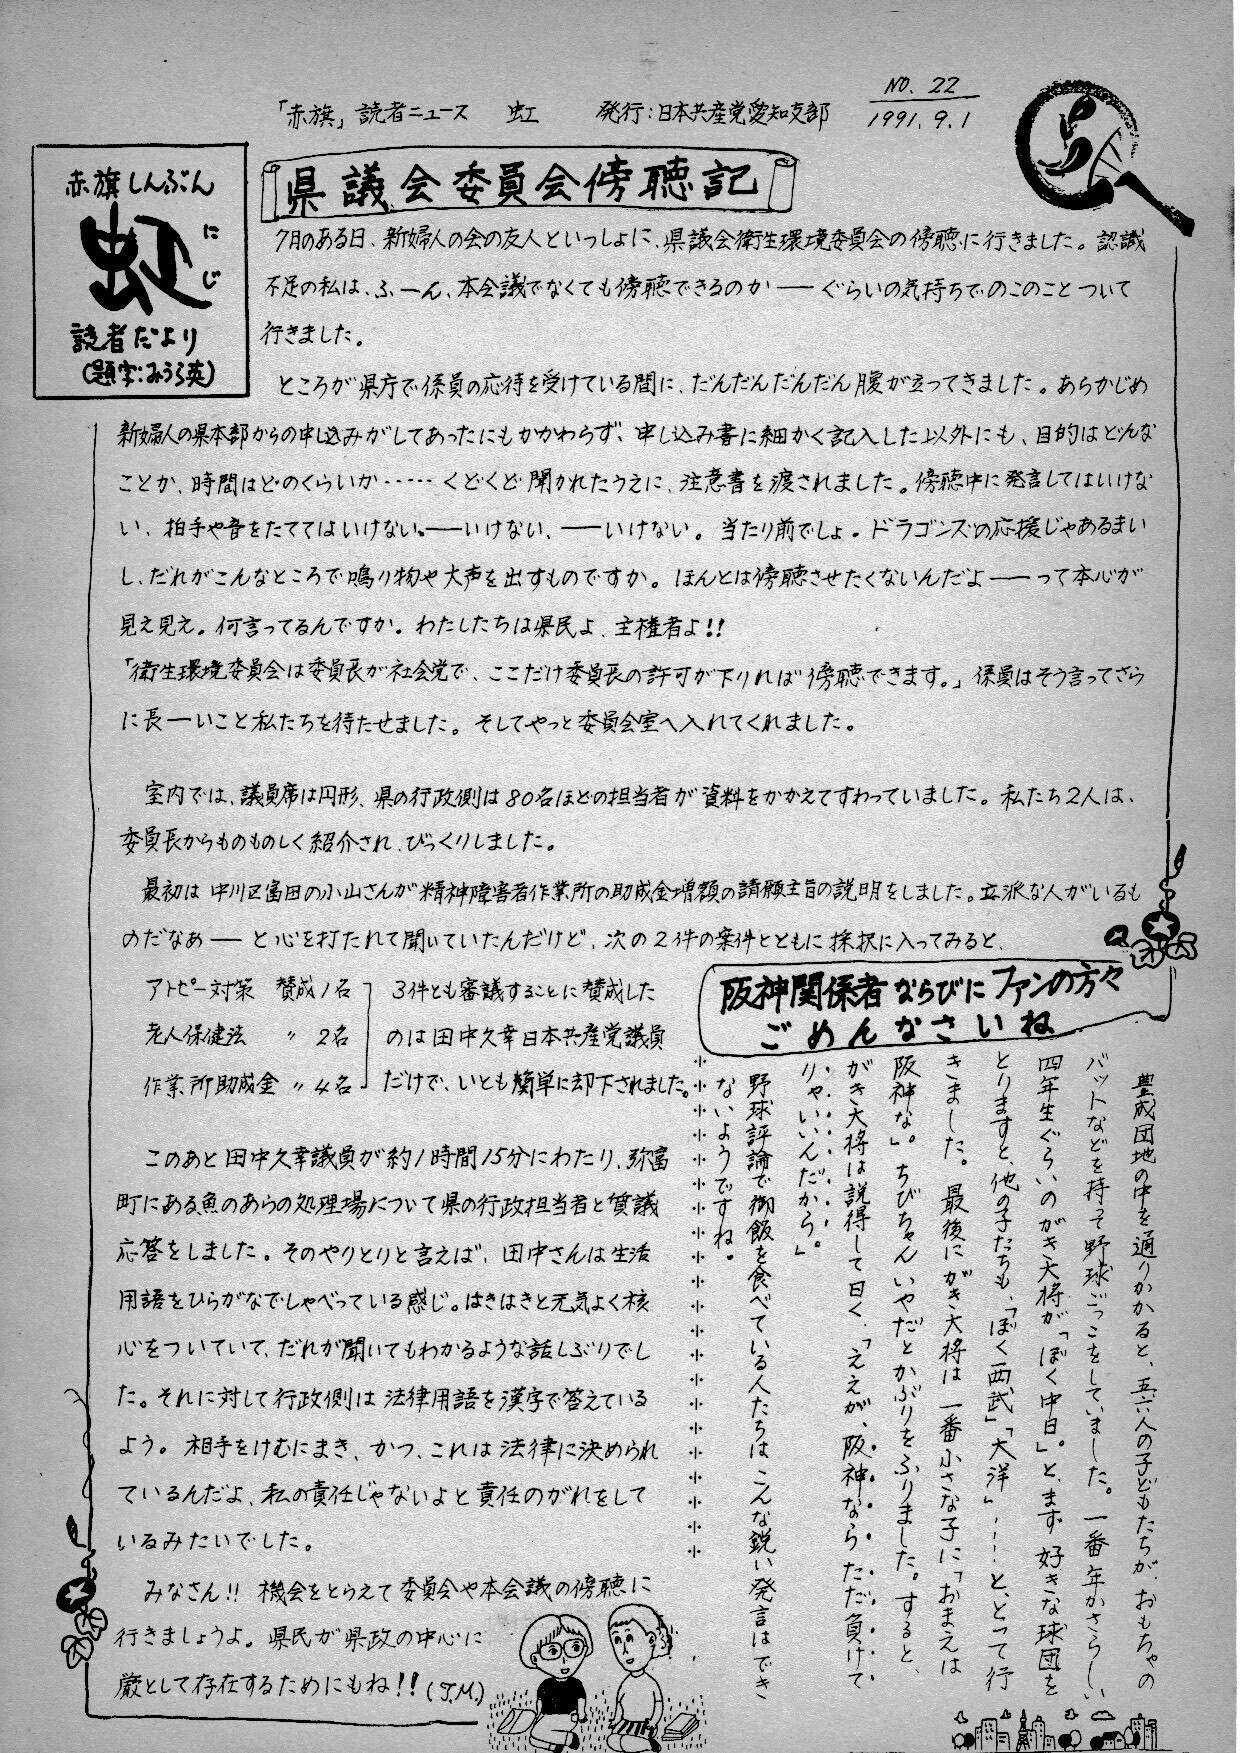 「赤旗」読者ニュース 虹 発行：日本共産党愛知支部
NO. 22
1991.9.1
赤旗しんぶん
虹
にじ
読者だより
(題字：みうら英)
県議会委員会傍聴記
7月のある日、新婦人の会の友人といっしょに、県議会衛生環境委員会の傍聴に行きました。認識
不足の私は、ふーん、本会議でなくても傍聴できるのか――ぐらいの気持ちでのこのことついて
行きました。
ところが県庁で係員の応待を受けている間に、だんだんだんだん腹が立ってきました。あらかじめ
新婦人の県本部からの申し込みがしてあったにもかかわらず、申し込み書に細かく記入した以外にも、目的はどんな
ことか、時間はどのくらいか……くどくど聞かれたうえに、注意書を渡されました。傍聴中に発言してはいけな
い、拍手や音をたててはいけない、――いけない、――いけない。当たり前でしょ。ドラゴンズの応援じゃあるまい
し、だれがこんなところで鳴り物や大声を出すものですか。ほんとは傍聴させたくないんだよ――って本心が
見え見え。何言ってるんですか。わたしたちは県民よ、主権者よ!!
「衛生環境委員会は委員長が社会党で、ここだけ委員長の許可が下りれば傍聴できます。」係員はそう言ってさら
に長ーいこと私たちを待たせました。そしてやっと委員会室へ入れてくれました。
室内では、議員席は円形、県の行政側は80名ほどの担当者が資料をかかえてすわっていました。私たち2人は、
委員長からものものしく紹介され、びっくりしました。
最初は中川区富田の小山さんが精神障害者作業所の助成金増額の請願主旨の説明をしました。立派な人がいるも
のだなあ――と心を打たれて聞いていたんだけど、次の2件の案件とともに採択に入ってみると、
アトピー対策 賛成1名
老人保健法 〃 2名
作業所助成金 〃 4名
3件とも審議することに賛成した
のは田中久幸日本共産党議員
だけで、いとも簡単に却下されました。
このあと田中久幸議員が約1時間15分にわたり、弥富
町にある魚のあらの処理場について県の行政担当者と質議
応答をしました。そのやりとりと言えば、田中さんは生活
用語をひらがなでしゃべっている感じ。はきはきと元気よく核
心をついていて、だれが聞いてもわかるような話しぶりでし
た。それに対して行政側は法律用語を漢字で答えている
よう。相手をけむにまき、かつ、これは法律に決められ
ているんだよ、私の責任じゃないよと責任のがれをして
いるみたいでした。
みなさん!! 機会をとらえて委員会や本会議の傍聴に
行きましょうよ。県民が県政の中心に
厳として存在するためにもね!! (J.M.)
阪神関係者ならびにファンの方々
ごめんなさいね
豊成団地の中を通りかかると、五六人の子どもたちが、おもちゃの
バットなどを持って野球ごっこをしていました。一番年かさらしい
四年生ぐらいのがき大将が「ぼく中日。」と、まず好きな球団を
とりますと、他の子たちも、「ぼく西武」「大洋」……と、とって行
きました。最後にがき大将は一番小さな子に「おまえは
阪神な。」ちびちゃんいやだとかぶりをふりました。すると、
がき大将は説得して曰く、「ええが、阪神ならただ負けて
りゃいいんだから。」
野球評論で御飯を食べている人たちはこんな鋭い発言はでき
ないようですね。